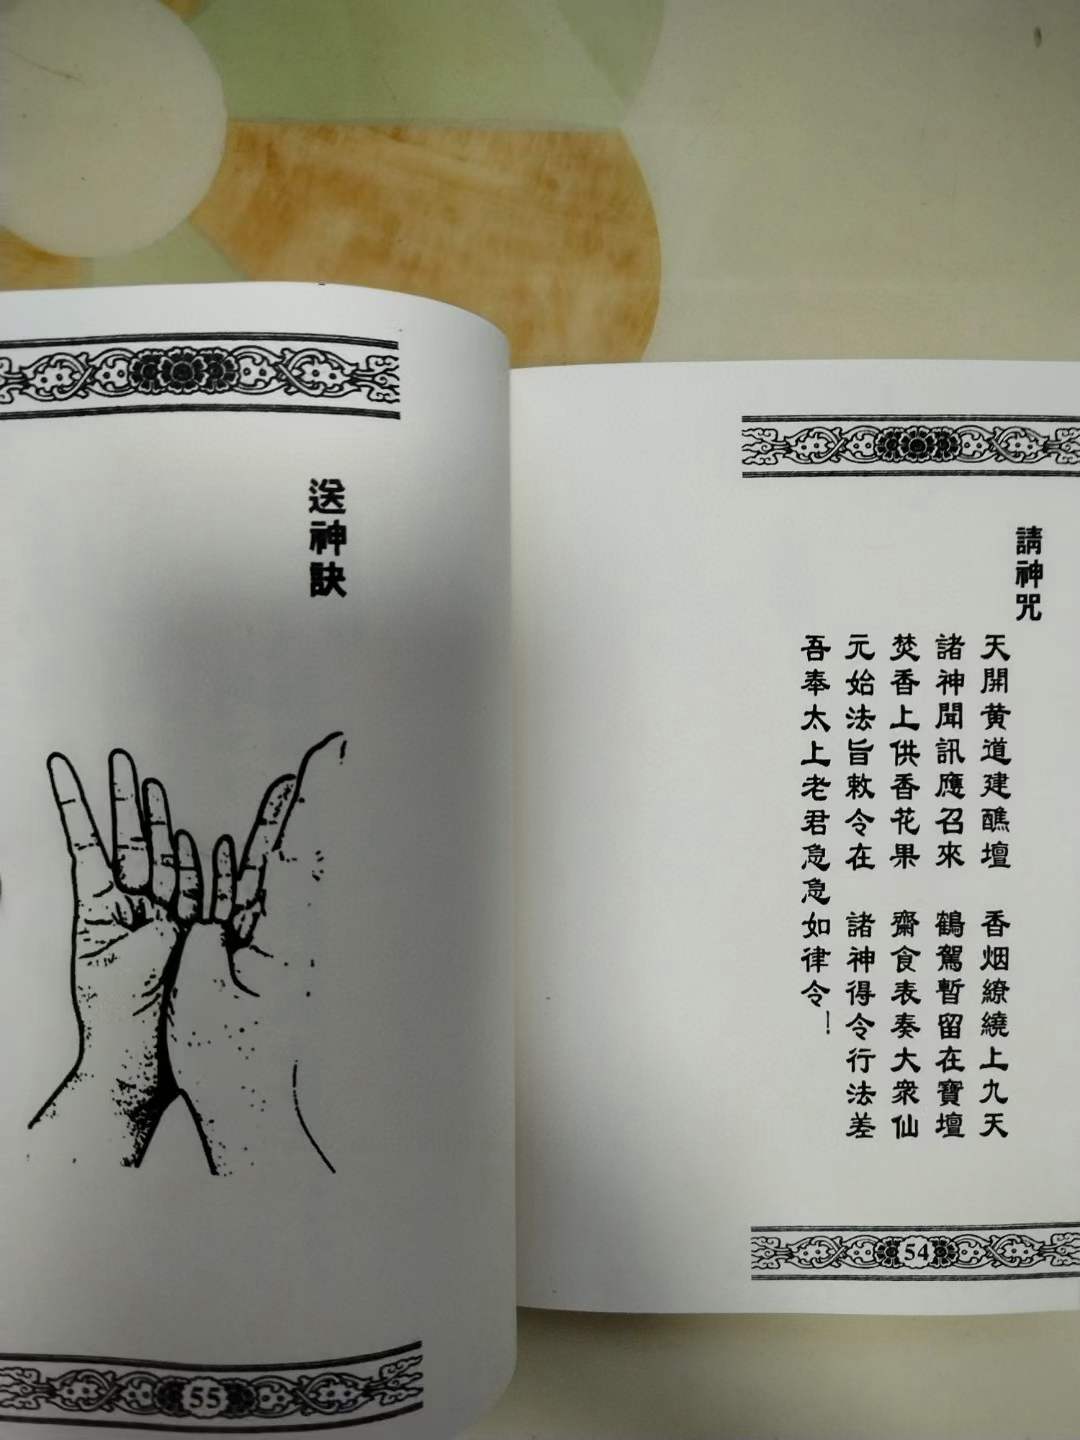 請神咒
天開黃道建醮壇　香烟繚繞上九天
諸神聞訊應召來　鶴駕暫留在寶壇
焚香上供香花果　齋食表奏大衆仙
元始法旨敕令在　諸神得令行法差
吾奉太上老君急急如律令！
54
送神訣
55